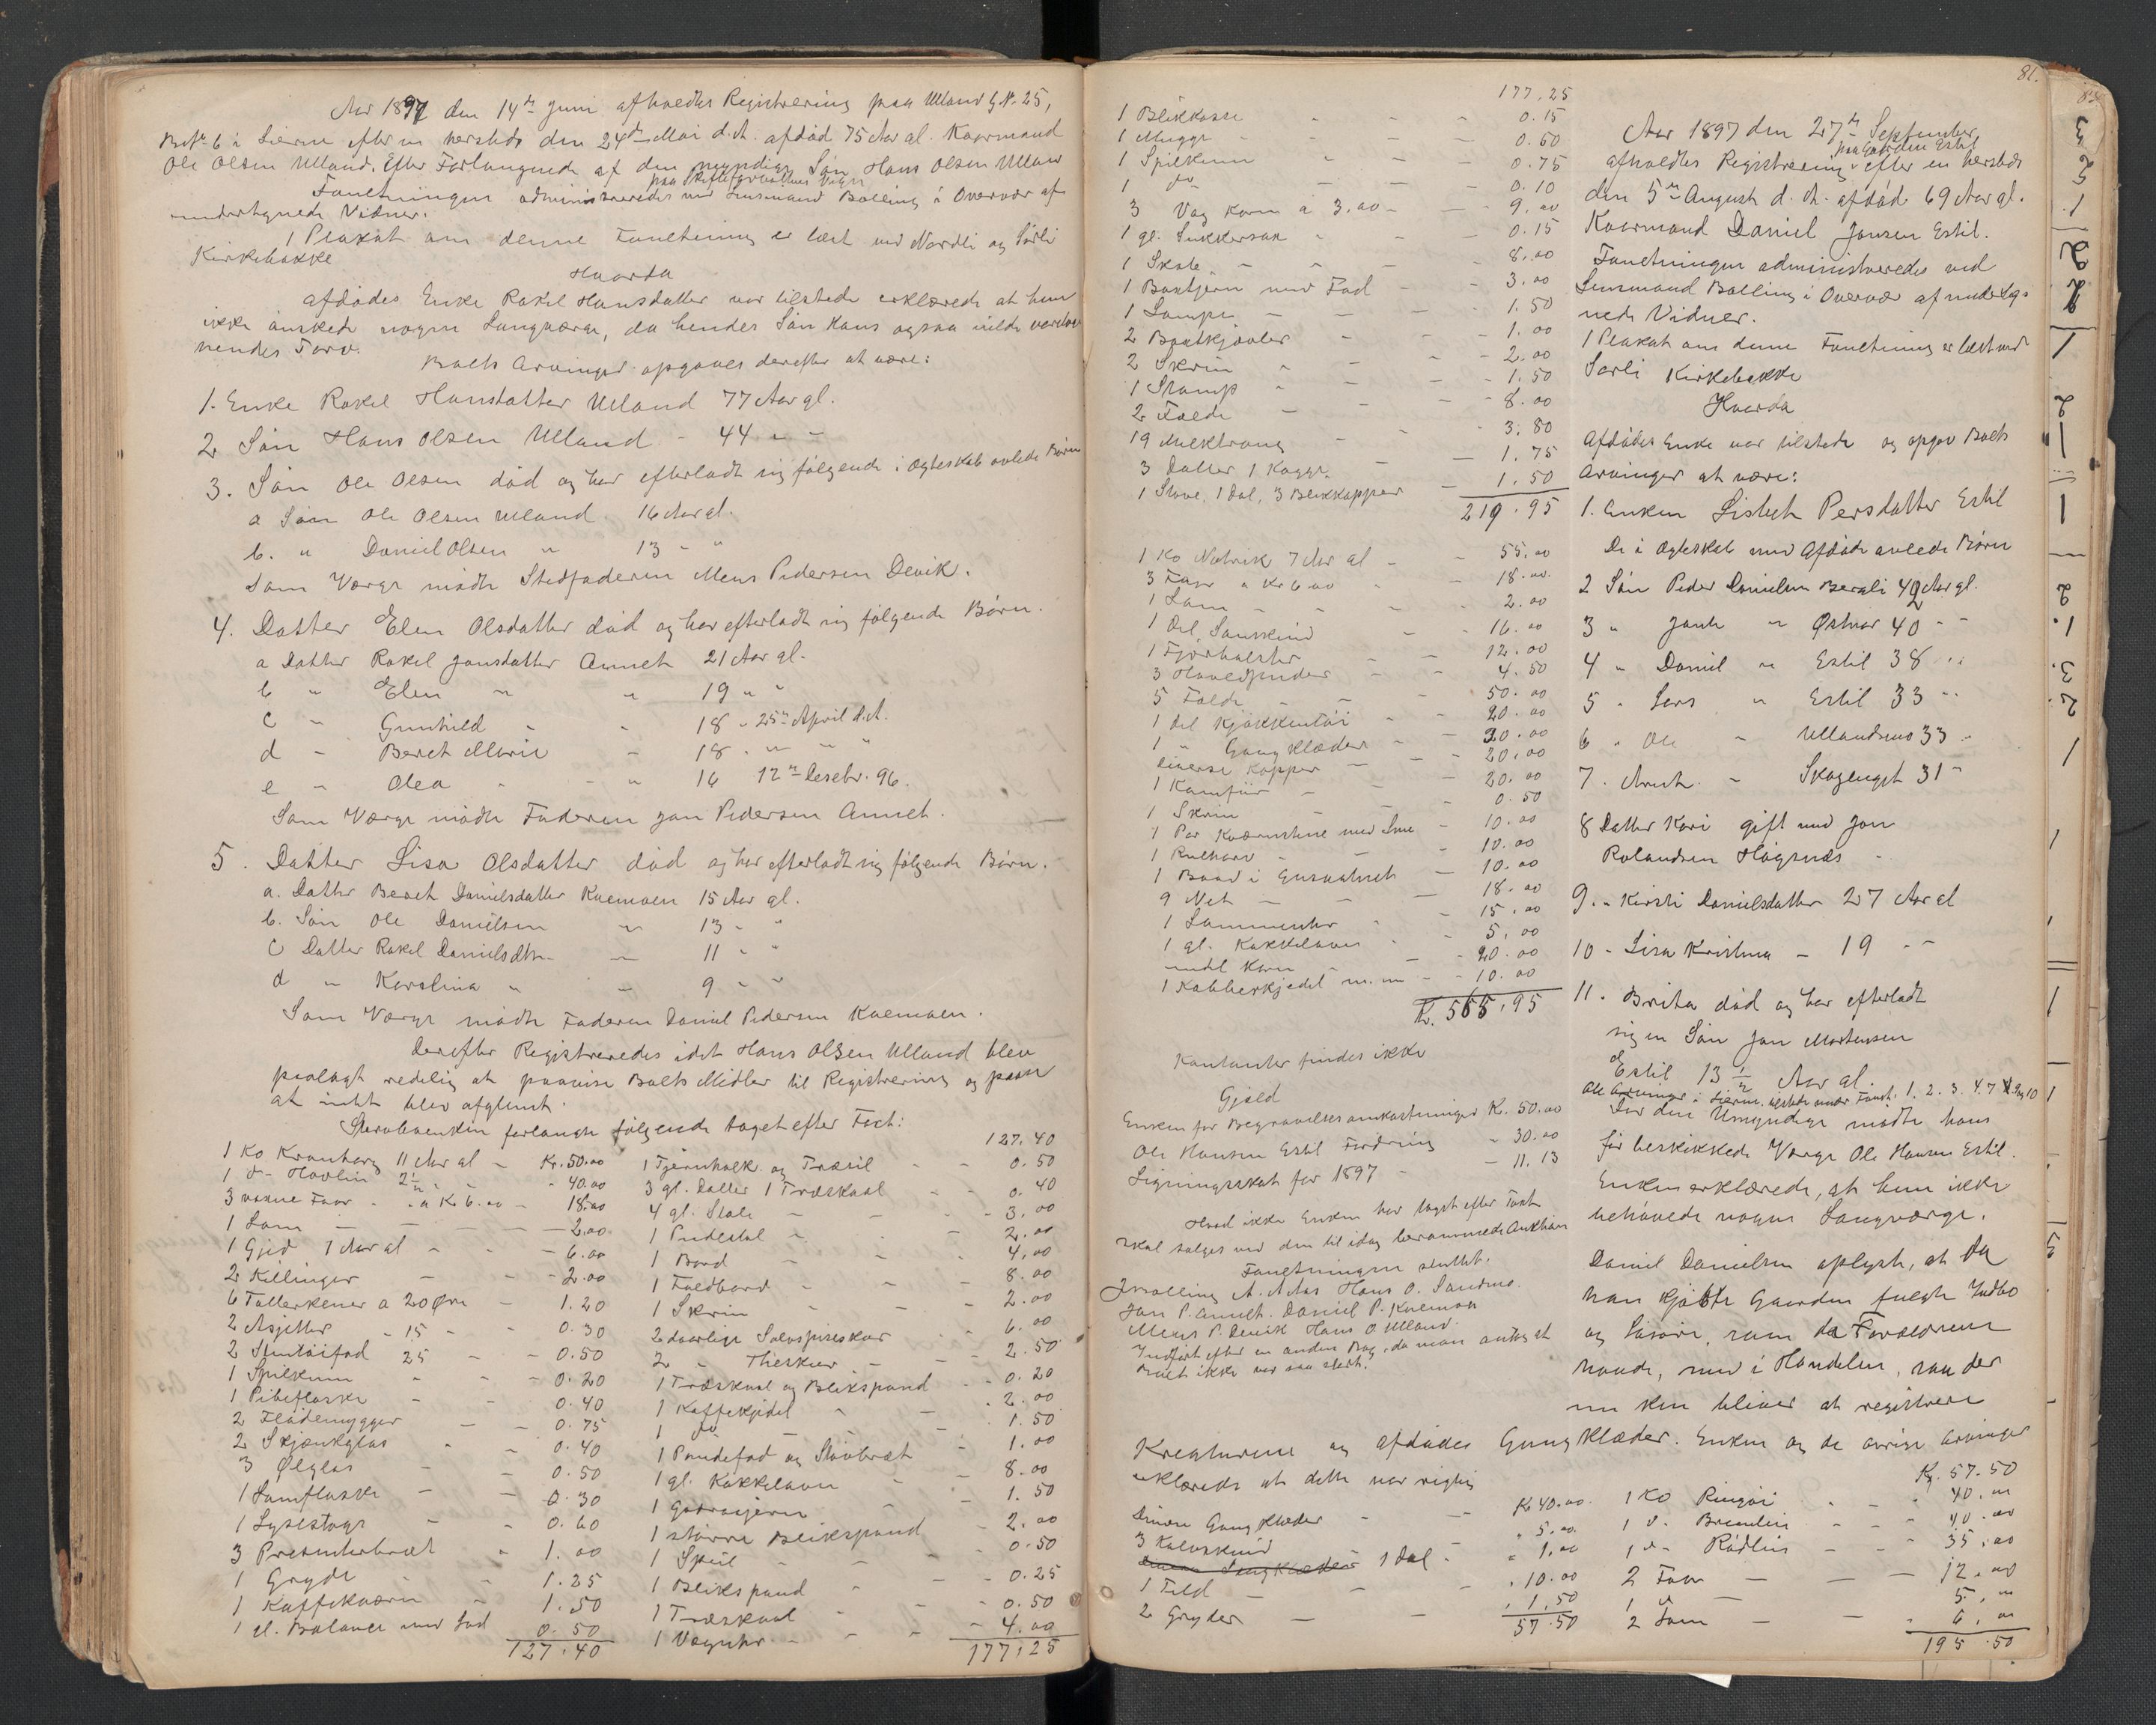 Aar 1897 den 14de Juni afholdtes Registrering paa Ulland G. N. 25,
Br. N. 6 i Lierne efter en hersteds den 24de Mai d. A. afdød 75 Aar gl. Kaarmand
Ole Olsen Ulland. Efter Forlangende af den myndige Søn Hans Olsen Ulland
paa Skifteforvalterens Vegn
Forretningen administreredes ved Lensmand Bolling i Overvær af
undertegnede Vidner.
1 Plakat om denne Forretning er læst ved Nordli og Sørli
Kirkebakke
Hvorda
afdødes Enke Rakel Hansdatter var tilstede erklærede at hun
ikke ønskede nogen Laugværge, da hendes Søn Hans ogsaa vilde varetage
hendes Tarv.
Boets Arvinger opgaves derefter at være:
1. Enke Rakel Hansdatter Ulland 77 Aar gl.
2 Søn Hans Olsen Ulland - 44 " -
3. Søn Ole Olsen død og har efterladt sig følgende i Ægteskab avlede Børn
a Søn Ole Olsen Ulland 16 Aar gl.
b. " Daniel Olsen " 13 - "
Som Værge mødte Stedfaderen Mens Pedersen Devik.
4. Datter Elen Olsdatter død og har efterladt sig følgende Børn.
a Datter Rakel Jonsdatter Annet 21 Aar gl.
b " Elen " " 19 " "
c " Gunhild " - 18 - 25de April d. A.
d - Beret Marie - 18 - " " "
e - Olea - " 16 12te Desebr. 96.
Som Værge mødte Faderen Jon Pedersen Annet.
5. Datter Lisa Olsdatter død og har efterladt sig følgende Børn.
a. Datter Beret Danielsdatter Kvemoen 15 Aar gl.
b. Søn Ole Danielsen " 13 - "
c Datter Rakel Danielsdtr - 11 - "
d " Karolina " - 9 - "
Som Værge mødte Faderen Daniel Pedersen Kvemoen.
Derefter Registreredes idet Hans Olsen Ulland blev
paalagt redelig at paavise Boets Midler til Registrering og paase
at intet blev afglemt.
Stervboenken forlangte følgende taget efter Taxt:
1 Ko Kranborg 11 Aar gl - Kr. 50.00
1 do Hovlin 2 1/2 " - 40.00
3 voxne Faar - a Kr 6.00 - 18.00
1 Lam - - - 2.00
1 Gjed 1 Aar gl - - 6.00
2 Killinger - - 2.00
6 Tallerkener a 20 Øre - 1.20
2 Asjetter - 15 - - 0.30
2 Stentøifad 25 - - 0.50
1 Spilkum - - 0.20
1 Pibeflaske - - 0.40
2 Flødemugger - - 0.75
2 Skjænkglas - - 0.40
3 Ølglas - - 0.50
1 Lomflaske - - 0.30
1 Lysestage - - 0.60
3 Presenterbræt - 1.00
1 Gryde - - 1.25
1 Kaffekværn - 1.50
1 gl. Balance med Lod 0.50
127.40
127.40
1 Tjernholk og Træsil - - 0.50
3 gl. Daller 1 Træskaal - - 0.40
4 gl. Stole - - 3.00
1 Pudestol - - 2.00
1 Bord - - 4.00
1 Foldbord - - 8.00
1 Skrin - - 2.00
2 daarlige Sølvspiseskeer - 6.00
2 " Theskeer - - 2.50
1 Træskaal og Blikspand - 0.20
1 Kaffekjedel - - 2.00
1 do - - 1.50
1 Pandefad og Støvbræt - 1.00
1 gl. Kakkelovn - 8.00
1 Gorojern - - 1.50
1 større Blikspand - 2.00
1 Speil - - 0.50
1 Blikspand - - 0.25
1 Træskaal - - 0.50
1 Væguhr - - 4.00
177.25
177.25
1 Blikkasse - - 0.15
1 Mugge - - 0.60
1 Spilkum - - 0.75
1 do - - 0.10
3 Vog Korn a 3.00 - - 9.00
1 gl. Sukkersax - - 0.15
1 Skab - - 8.00
1 Baxtjern med Fad - - 3.00
1 Lampe - - 1.50
2 Baxtkjævler - - 1.00
2 Skrin - - 2.00
1 Stamp - - 1.50
2 Fælde - - 8.00
19 Melktraug - - 3.80
3 Daller 1 Kagge - - 1.75
1 Stave, 1 Dal, 3 Blikkopper - 1.50
219.95
1 Ko Nutrik 7 Aar gl - - 55.00
3 Faar a Kr 6.00 - 18.00
1 Lam - - 2.00
1 Del Sauskind - - 16.00
1 Fjorholster - - 12.00
3 Hovedpuder - - 4.50
5 Fælde - - 50.00
1 Del Kjøkkentøi - - 20.00
1 " Gang Klæder - - 30.00
Diverse Kopper - - 20.00
1 Kamfiir - - 20.00
1 Skrin - - 0.50
1 Par Kværnstene med - 10.00
1 Rulharv - - 10.00
1 Baad i - 10.00
9 Net - - 18.00
1 Lommeuhr - - 15.00
1 gl. Kakkelovn - - 5.00
endel Korn - - 20.00
1 Kobberkjedel m. m - - 10.00
Kr. 565.95
Kontanter findes ikke
Gjæld
Enken for Begravelsesomkostninger Kr. 50.00
Ole Hansen Estil Fordring " 30.00
Ligningsskat for 1897 - - 11.13
Hvad ikke Enken har taget efter Taxt
skal sælges ved den til idag berammede Auktion
Forretningen sluttet.
J Bolling A. Aas Hans O. Sandmo.
Jon P. Annet. Daniel P. Kvemoen
Mens P. Devik Hans O Ulland.
Indført efter en anden Bog, da man antog at
Boet ikke var saa stort.
81.
Aar 1897 den 27de September
paa Gaarden Estil
afholdtes Registrering efter en hersteds
den 5te August d. A. afdød 69 Aar gl.
Kaarmand Daniel Jonsen Estil.
Forretningen administreredes ved
Lensmand Bolling i Overvær af underteg-
nede Vidner.
1 Plakat om denne Forretning er læst ved
Sørli Kirkebakke
Hvorda
Afdødes Enke var tilstede og opgav Boets
Arvinger at være:
1. Enken Lisbet Persdatter Estil
De i Ægteskab med Afdøde avlede Børn
2 Søn Peder Danielsen Bergli 42 Aar gl.
3 " Jonte " Østnor 40 - -
4 " Daniel " Estil 38 - -
5 " Lars " Estil 33 - -
6 " Ole - Ullandmo 33 -
7. Arnt - Skogenget 31 -
8 Datter Kari gift med Jon
Rolandsen Høgsnæs -
9. " Kirsti Danielsdatter 27 Aar gl
10 - Lisa Kristina - 19 - -
11. Brita død og har efterladt
sig en Søn Jon Mortensen
Estil 13 1/2 Aar gl.
Alle Arvinger i Lierne. tilstede under Forret. 1. 2. 3. 4. 7 og 10
For den Umyndige mødte hans
før beskikkede Værge Ole Hansen Estil.
Enken erklærede, at hun ikke
behøvede nogen Laugværge.
Daniel Danielsen oplyste, at da
han kjøbte Gaarden fulgte Indbo
og Løsøre, som da Forældrene
havde, med i Handelen, saa der
nu kun bliver at registrere
Kreaturene og afdødes Gang Klæder. Enken og de øvrige Arvinger
erklærede at dette var rigtig
Diverse Gang Klæder - - Kr 40.00
3 Kalveskind - " 5.00
1 Dal - " 1.00
1 Feld - - " 10.00
2 Gryder - - " 1.50
57.50
Kr. 57.50
1 Ko Ringøi - - 40.00
1 do Bremlin - - 40.00
1 do Rødlin - - 35.00
2 Faar - - 12.00
1 do - 5.00
2 Lam - - 6.00
195.50